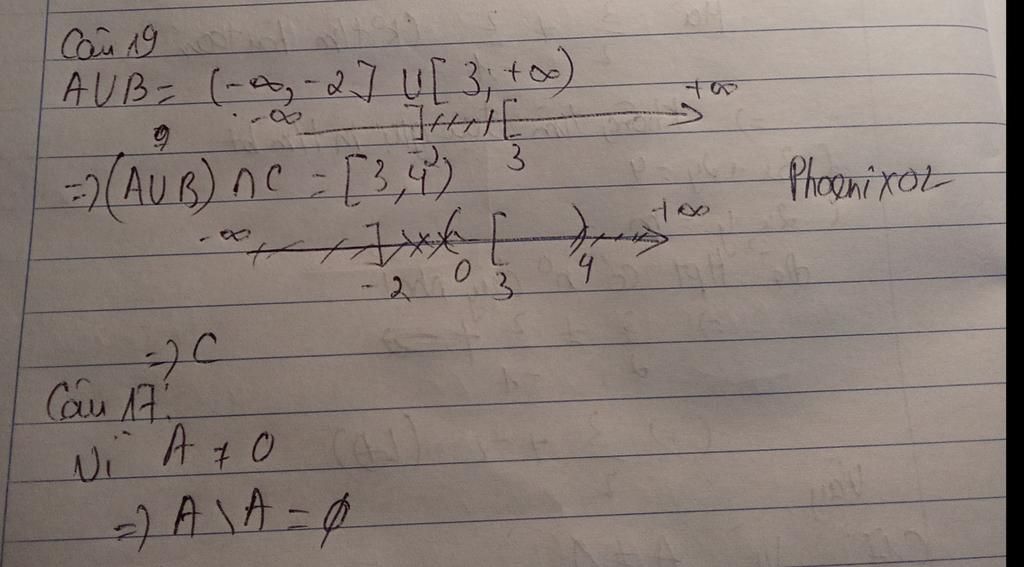 Câu 19
A∪B = (-∞, -2] ∪ [3; +∞)
-∞ ] [ +∞
3
=> (A∪B) ∩ C = [3, 4)
Phoenix02
-∞ ] ( [ ) +∞
-2 0 3 4
=> C
Câu 17:
Vì A ≠ 0
=> A \ A = ∅